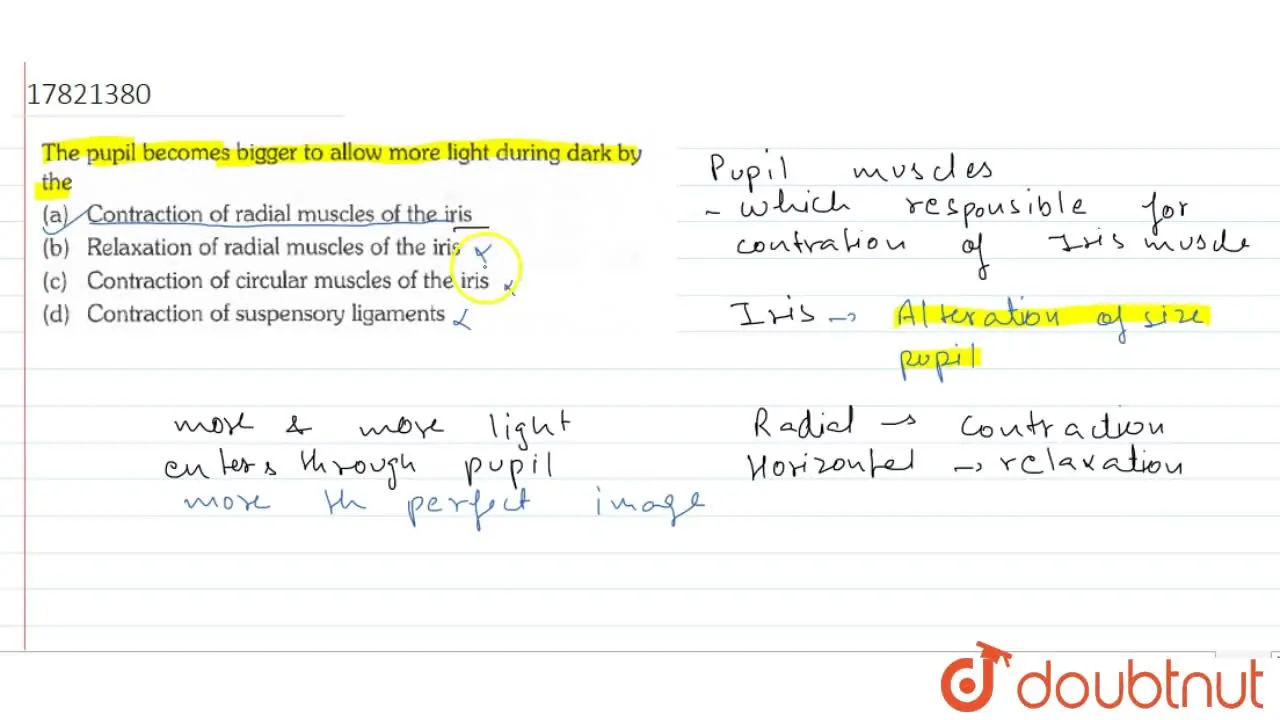 17821380
The pupil becomes bigger to allow more light during dark by
the
(a) Contraction of radial muscles of the iris
(b) Relaxation of radial muscles of the iris
(c) Contraction of circular muscles of the iris
(d) Contraction of suspensory ligaments
Pupil muscles
- which responsible for
contration of Iris muscle
Iris → Alteration of size
pupil
more & more light
enters through pupil
more th perfect image
Radial → contraction
Horizontal → relaxation
doubtnut